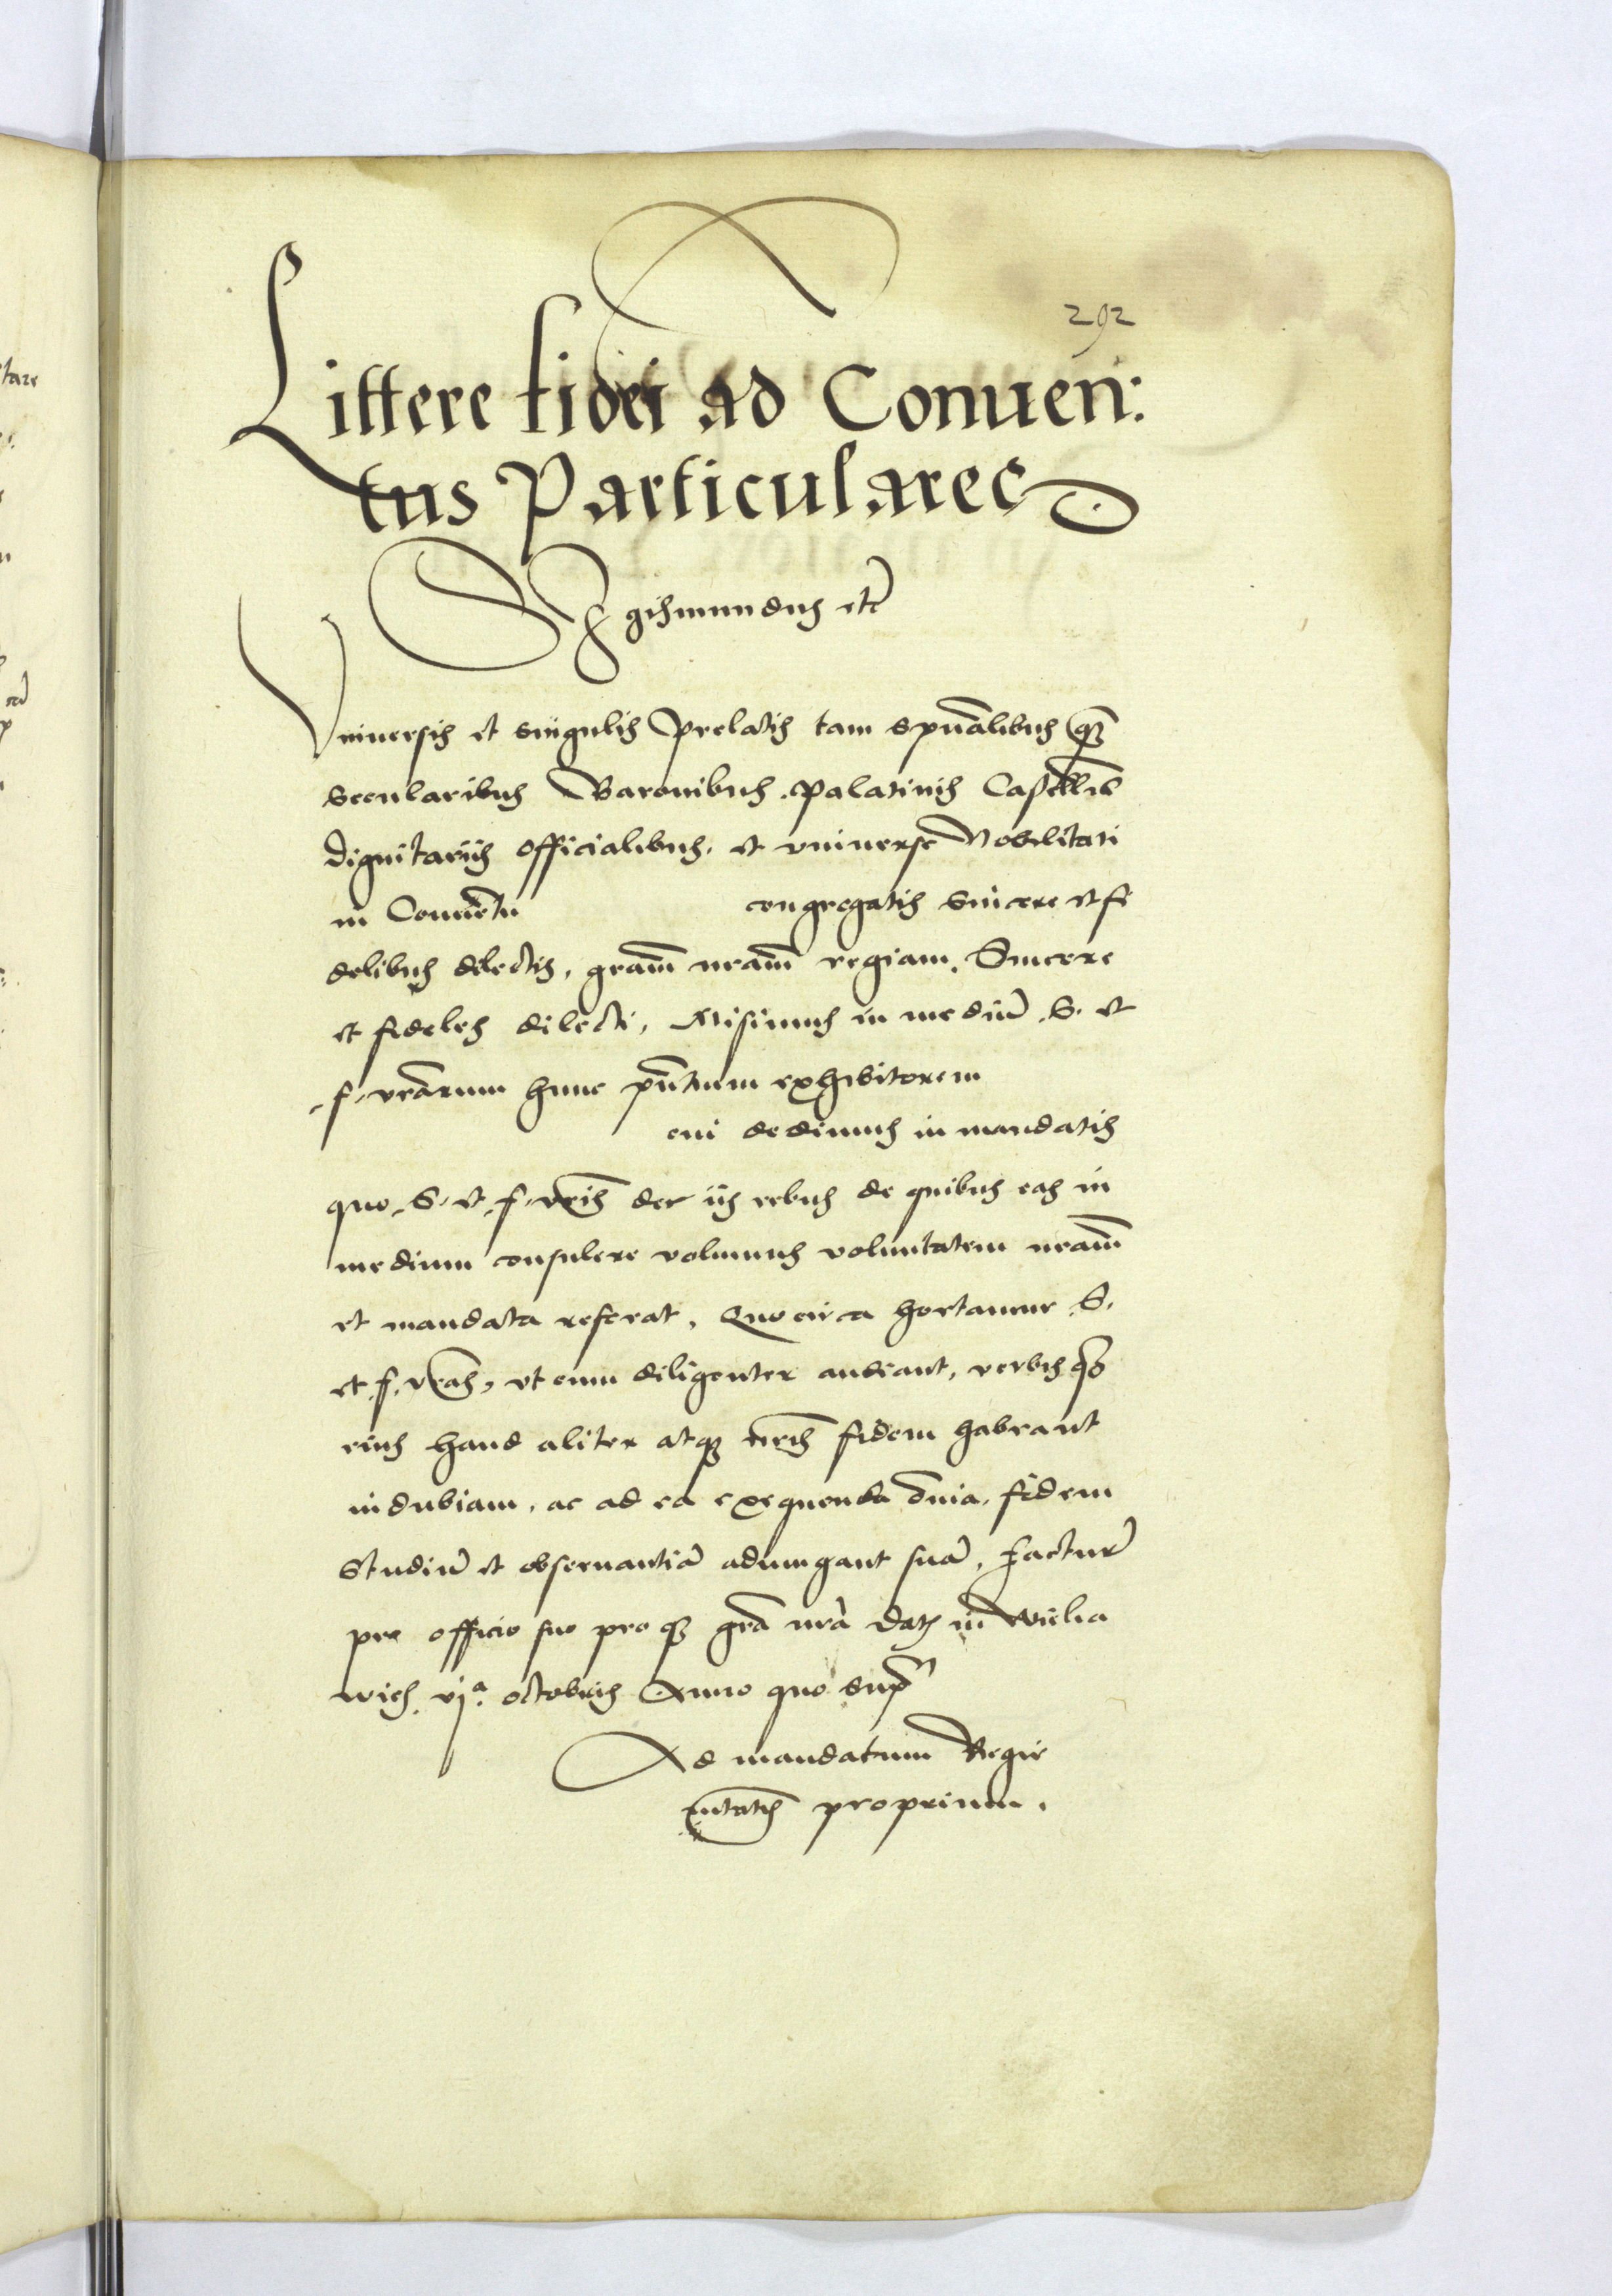 292
Littere fidei ad Conuen:
tus Particulares
Sigismundus etc̃
Vniuersis et singulis Prelatis tam spũalibus q̃
secularibus Baronibus. Palatinis Castellan̄
dignitariis officialibus. et vniuerse Nobilitati
in Conuẽtu congregatis sincere et fi
delibus dilectis, gram̃ nram̃ regiam. Sincere
et fideles dilecti, Misimus in mediũ .S. et
.f. vrãrum hunc pñtium exhibitorem
cui dedimus in mandatis
quo .S. et .f. vris̃ de iis rebus de quibus eas in
medium consulere volumus voluntatem nram̃
et mandata referat. Quocirca hortamur .S.
et .f. vras̃, vt eum diligenter audiant, verbis q̃
eius haud aliter atq̃ nris̃ fidem habeant
indubiam. ac ad ea exequenda õnia. fidem
studiũ et obseruantiã adiungant suã. facturẽ
pro officio suo pro q̃ grã nrã. Dat̃ in Wielia
wies. vjª. octobris Anno quo supª
Ad mandatum Regie
mtatis̃ proprium.